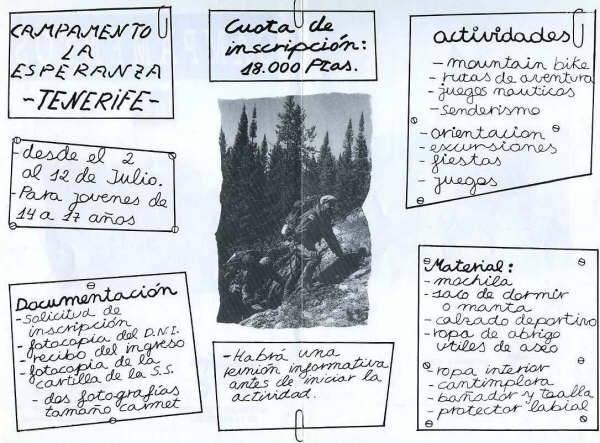 CAMPAMENTO
LA
ESPERANZA
-TENERIFE-
Cuota de
inscripción:
18.000 Ptas.
actividades
- mountain bike
- rutas de aventura
- juegos nauticos
- senderismo
- orientacion
- excursiones
- fiestas
- juegos
- desde el 2
al 12 de Julio.
- Para jovenes de
14 a 17 años
Documentación
- solicitud de
inscripción
- fotocopia del D.N.I.
- recibo del ingreso
- fotocopia de la
cartilla de la S.S.
- dos fotografías
tamaño carnet
- Habrá una
reunión informativa
antes de iniciar la
actividad.
Material:
- mochila
- saco de dormir
o manta
- calzado deportivo
- ropa de abrigo
utiles de aseo
- ropa interior
- cantimplora
- bañador y toalla
- protector labial